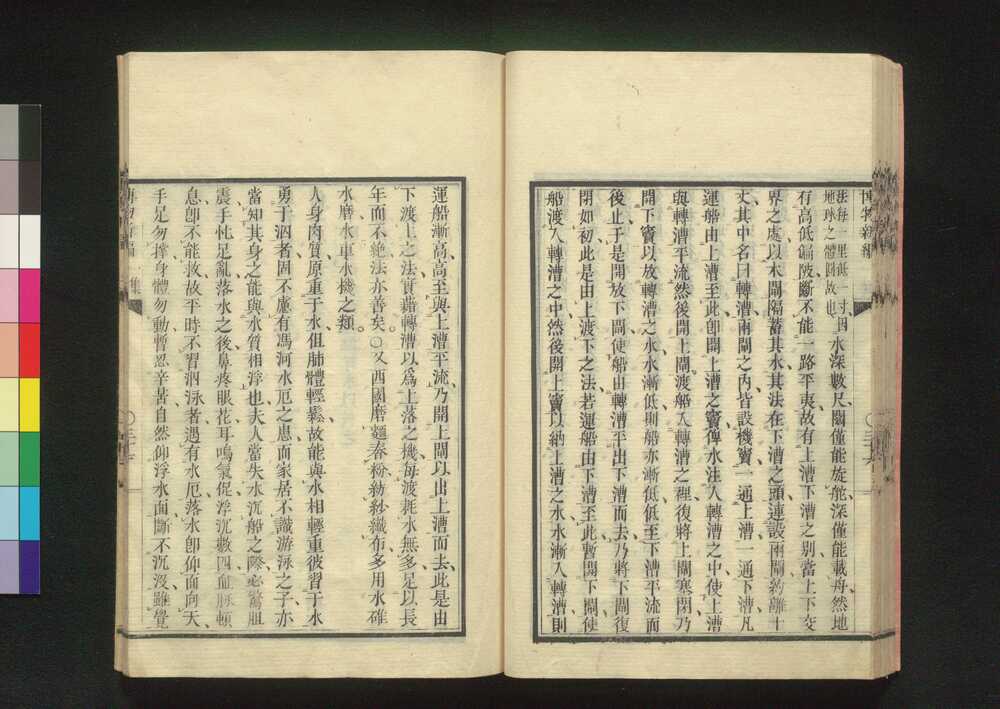 博物新編
法每一里低一寸因
地球之體圓故也
水深數尺闊僅能旋舵深僅能載舟然地
有高低偏陂斷不能一路平夷故有上漕下漕之別當上下交
界之處以木閘隔蓄其水其法在下漕之頭連設兩閘約離十
丈其中名曰轉漕兩閘之內皆設機竇一通上漕一通下漕凡
運船由上漕至此卽開上漕之竇俾水注入轉漕之中使上漕
與轉漕平流然後開上閘渡船入轉漕之裡復將上閘塞閉乃
開下竇以放轉漕之水水漸低則船亦漸低低至下漕平流而
後止于是開放下閘使船由轉漕平出下漕而去乃將下閘復
閉如初此是由上渡下之法若運船由下漕至此暫開下閘使
船渡入轉漕之中然後開上竇以納上漕之水水漸入轉漕則
運船漸高高至與上漕平流乃開上閘以出上漕而去此是由
下渡上之法實藉轉漕以爲上落之機每渡耗水無多足以長
年而不絶法亦善矣○又西國磨麵舂粉紡紗織布多用水碓
水磨水車水機之類
人身肉質原重于水但肺體輕鬆故能與水相輕重彼習于水
勇于泅者固不慮有馮河水厄之患而家居不識游泳之子亦
當知其身之能與水質相浮也夫人當失水沉船之際必驚胆
震手忙足亂落水之後鼻疼眼花耳鳴氣促浮沉數四血脉頓
息卽不能救故平時不習泅泳者遇有水厄落水卽仰面向天
手足勿撑身體勿動暫忍辛苦自然仰浮水面斷不沉沒雖覺